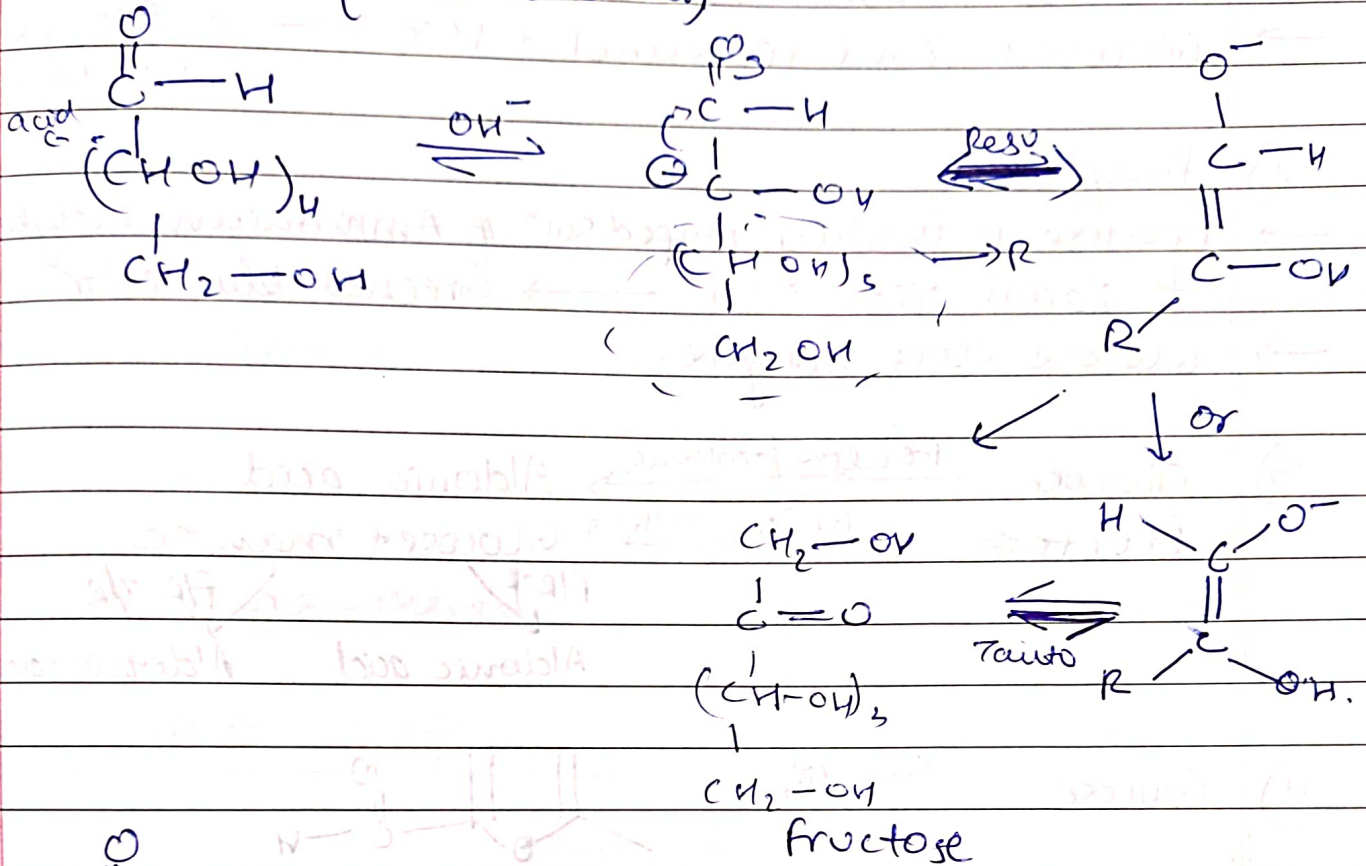 O
C — H
acid
(CH OH)4
CH2 — OH
OH⁻
O
C — H
⊖ C — OH
(C H OH)3 → R
CH2 OH
Reso
O⁻
C — H
C — OH
R
or
H O⁻
C
C
R OH.
Tauto
CH2 — OH
C = O
(CH-OH)3
CH2 – OH
fructose
O